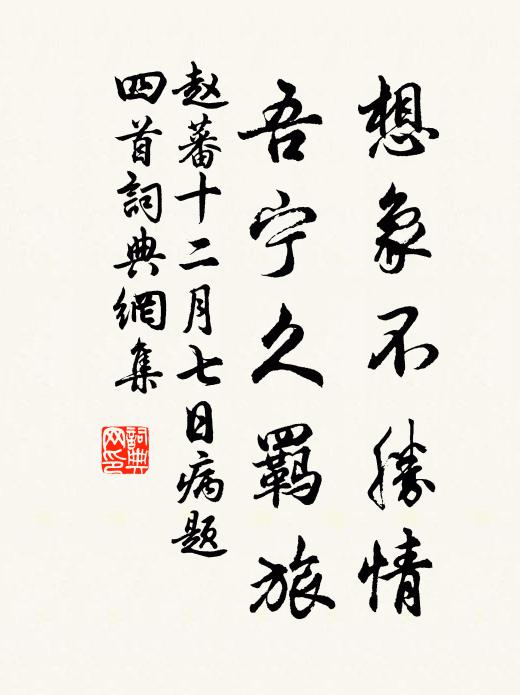 想象不勝情
吾宁久羈旅
赵蕃十二月七日病题
四首詞典網集
詞典
网印